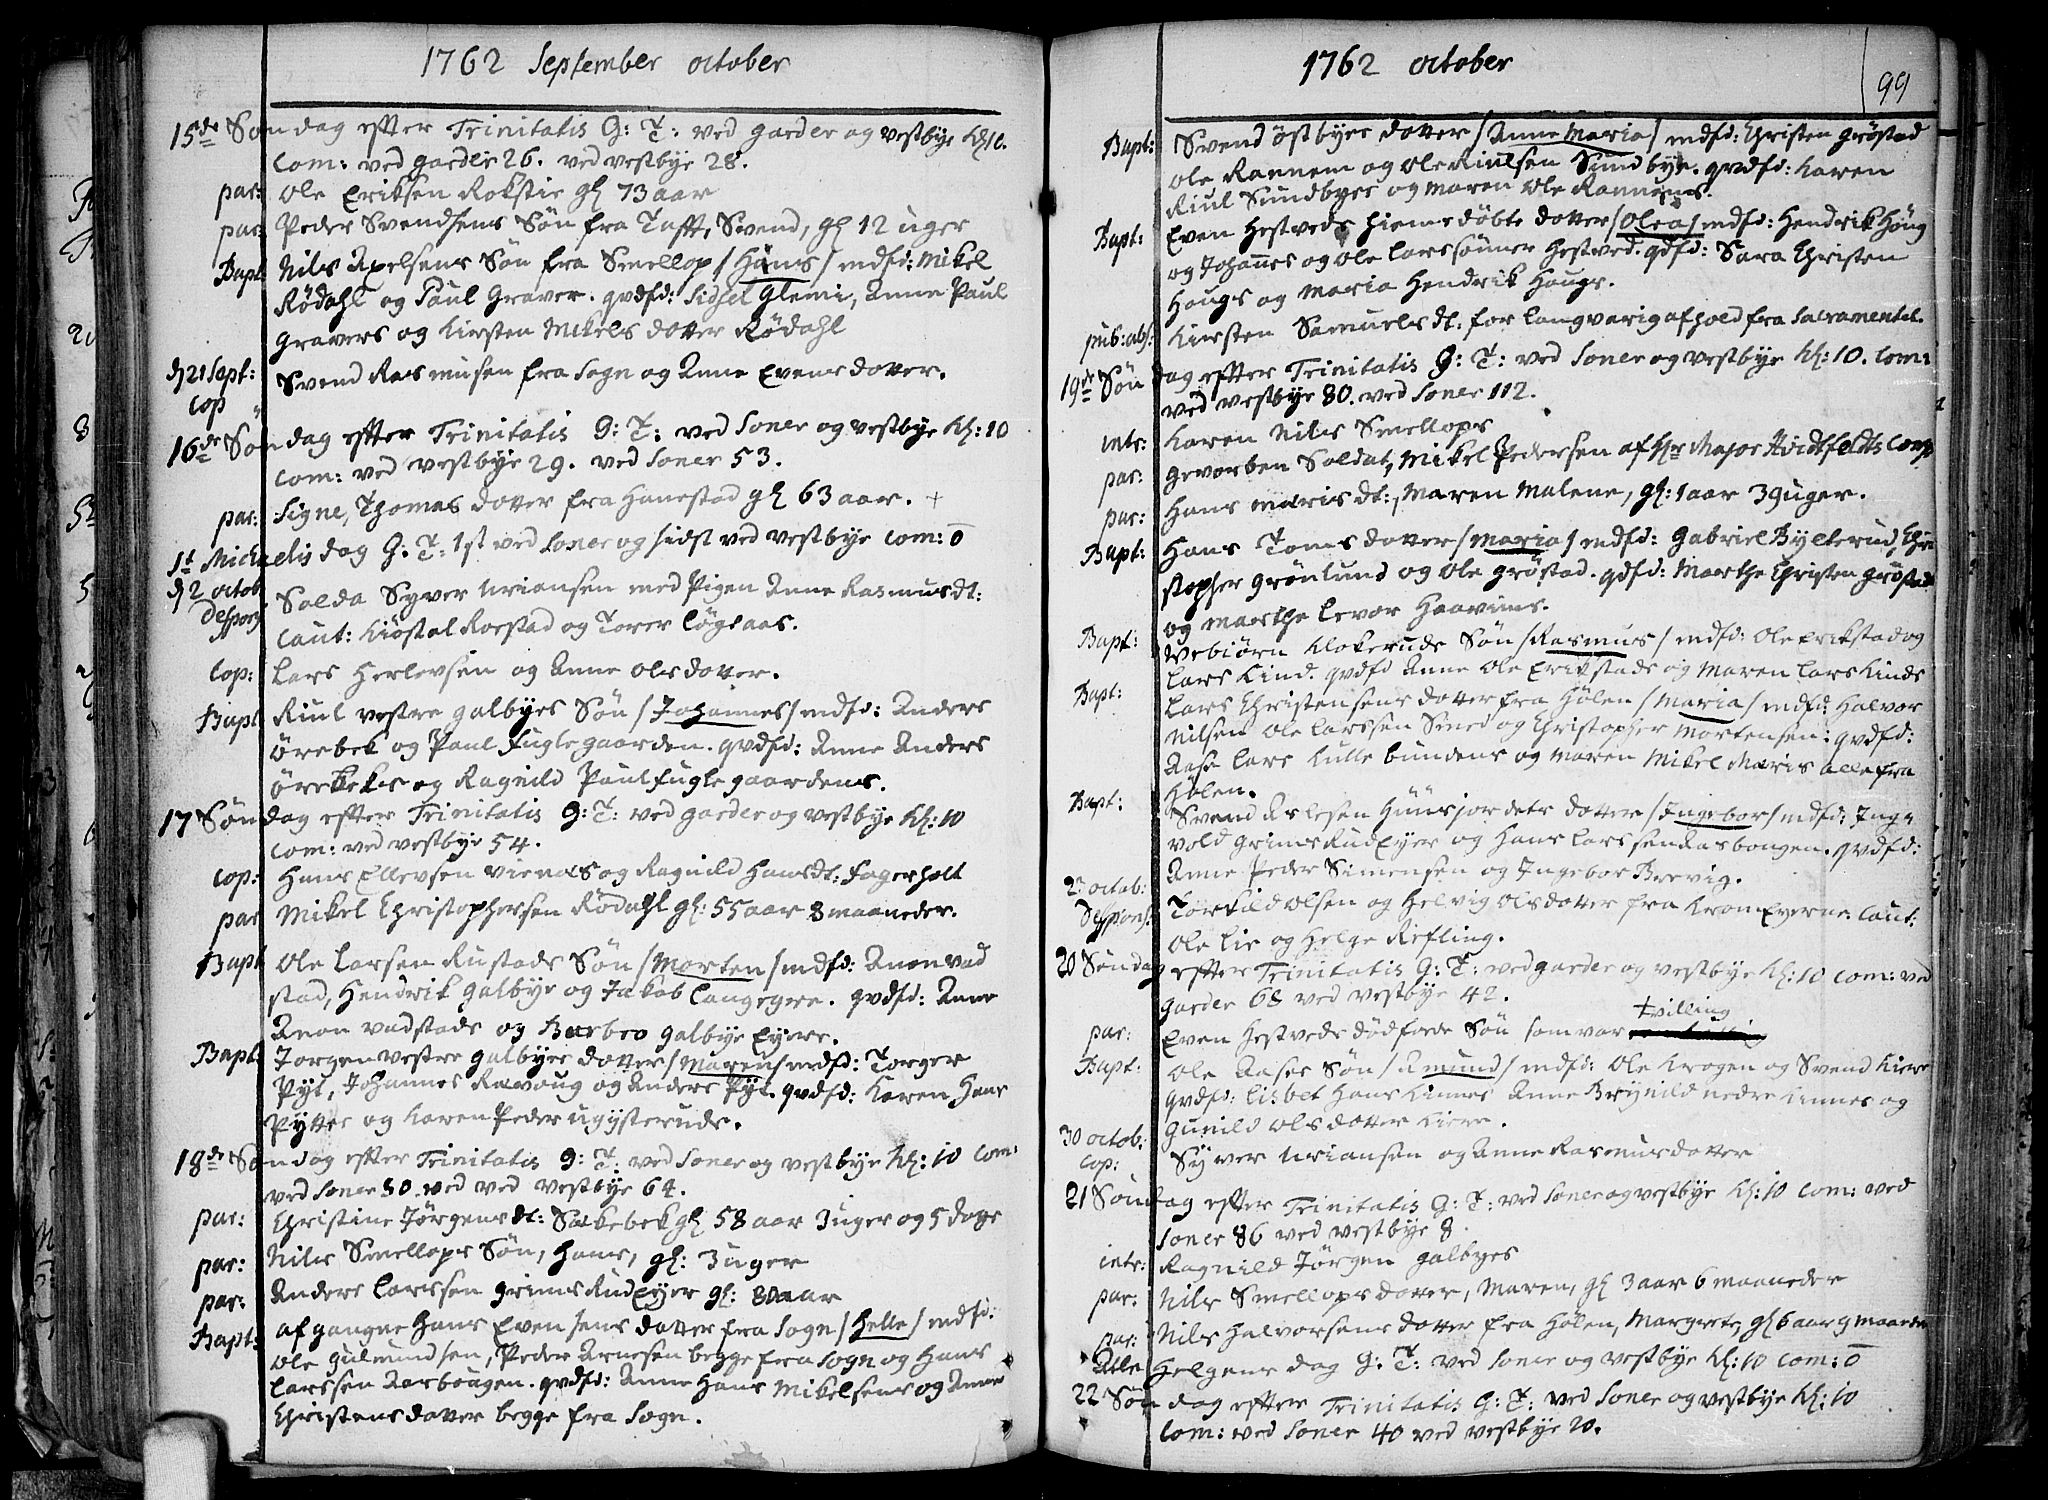 1762 September October
15de Søndag efter Trinitatis G: T: ved garder og vestbye Kl 10.
Com: ved garder 26. ved vestbye 28.
par: Ole Eriksen Rokstie gl 73 aar
par: Peder Svendsens Søn fra Tofft, Svend, gl 12 uger
Bapt Nils Axelsens Søn fra Smellop / Hans / mdfd: Mikel
Rødahl og Paul Graver. qvdfd: Sidsel Glemi, Anne Paul
Gravers og Kirsten Mikels dotter Rødahl
d 21 Sept: Svend Rasmusen fra Sogn og Anne Evensdotter.
Cop
16de Søndag effter Trinitatis G: T: ved Soner og vestbye Kl: 10
Com: ved vestbye 29. ved Soner 53.
par: Signe, Thomas dotter fra Hanestad gl 63 aar. +
1st Michaelis dag G. T. 1st ved Soner og sidst ved vestbye Com: 0
d 2 octob Solda Syver Uriansen med Pigen Anne Rasmusdt:
Despons Caut: Kiøstol Roestad og Torer Løgsaas.
Cop: Lars Herlevsen og Anne Olsdotter.
Bapt Riul vestre galbyes Søn / Johannes / mdfd: Anders
Ørebek og Paul fuglegaarden. qvdfd: Anne Anders
Ørebekes og Ragnild Paul fuglegaardens.
17 Søndag effter Trinitatis G: T: ved garder og vestbye Kl: 10
Com: ved vestbye 54.
Cop: Hans Ellevsen Vienaas og Ragnild Hansdt: fagerholt
par Mikel Christophersen Rødahl gl: 55 aar 8 maaneder.
Bapt Ole Larsen Rustads Søn / Morten / mdfd: Anon vad
stad, Hendrik galbye og Jakob Langegre. qvdfd: Anne
Anon vadstads og Barbro galbye Eyere.
Bapt: Jørgen vestre galbyes dotter / Maren / mdfd: Torger
Pyt, Johannes Ravoug og Anders Pyt. qvdfd: Karen Hans
Pyttes og Karen Peder ugysteruds.
18de Søndag effter Trinitatis G: T: ved Soner og vestbye Kl: 10 Com:
ved Soner 80. ved ved vestbye 64.
par: Christine Jørgensdt: Sækebek gl 58 aar 3 uger og 5 dage
par: Nils Smellops Søn, Hans, gl: 3 uger
par: Anders Larssen grimsrud Eyer gl: 80 aar
Bapt: afgangne Hans Evensens dotter fra Sogn / Helle / mdfd:
Ole Gulmundsen, Peder Arnesen begge fra Sogn og Hans
Larssen Aasbougen. qvdfd: Anne Hans Mikelsens og Anne
Christensdotter begge fra Sogn.
1762 October
99
Bapt: Svend Østbyes dotter / Anne Maria / mdfd: Christen Grøstad
Ole Rannem og Ole Riulsen Sundbye. qvdfd: Karen
Riul Sundbyes og Maren Ole Rannems.
Bapt: Even Hestveds hiemedøbte dotter / Olea / mdfd: Hendrik Houg
og Johannes og Ole Larssønner Hestved. qdfd: Sara Christen
Hougs og Maria Hendrik Hougs.
pub: abs: Kirsten Samuelsdt: for langvarig afhold fra Sacramentet.
19de Søndag efter Trinitatis G: T: ved Soner og vestbye Kl: 10. Com:
ved vestbye 80. ved Soner 112.
intr: Karen Nils Smellops
par: gevorben Soldat, Mikel Pedersen af Hr Major Hvidtfeldts Comp
par: Hans Marisdt:, Maren Malene, gl: 1 aar 39 uger.
Bapt: Hans Toms dotter / Maria / mdfd: Gabriel Bylterud, Chri
stopher Grønlund og Ole Grøstad. qdfd: Marthe Christen Grøstads
og Marthe Levor Haavims.
Bapt: Vebiørn Klokeruds Søn / Rasmus / mdfd: Ole Erikstad og
Lars Kind. qvdfd Anne Ole Erikstads og Maren Lars Kinds
Bapt: Lars Christensens dotter fra Hølen / Maria / mdfd: Halvor
Nilsen Ole Larssen Smed og Christopher Mortensen: qvdfd:
Aase Lars Lullebundens og Maren Mikel Maris alle fra
Hølen.
Bapt: Svend Aslesen Huusjordets dotter / Ingebor / mdfd: Ing-
vold Grimsrud Eyer og Hans Larssen Aasbougen. qvdfd:
Anne Peder Simensen og Ingebor Brevig.
23 octob: Torkild Olsen og Helvig Olsdotter fra Krom Eyerne Caut:
Despons: Ole Lie og Helge Riefling.
20 Søndag effter Trinitatis G: T: ved garder og vestbye Kl: 10 Com: ved
garder 68 ved vestbye 42.
par: Even Hestveds dødføde Søn som var tvilling
Bapt: Ole Aases Søn / Amund / mdfd: Ole Krogen og Svend Kiere
qvdfd: Lisbet Hans Kinnes Anne Brynild nedre Kinnes og
Gunild Olsdotter Kiere.
30 octob: Syver Uriansen og Anne Rasmusdotter
Cop:
21 Søndag effter Trinitatis G: T: ved Soner og vestbye Kl: 10 Com: ved
Soner 86 ved vestbye 8.
intr: Ragnild Jørgen galbyes
par: Nils Smellops dotter, Maren, gl 3 aar 6 maaneder
par: Nils Halvorsens dotter fra Hølen, Margrete, gl 6 aar 9 maaneder
Alle Helgens dag G. T: ved Soner og vestbye Kl: 10 Com: 0
22 Søndag effter Trinitatis G: T: ved Soner og vestbye Kl: 10
Com: ved Soner 40 ved vestbye 20.